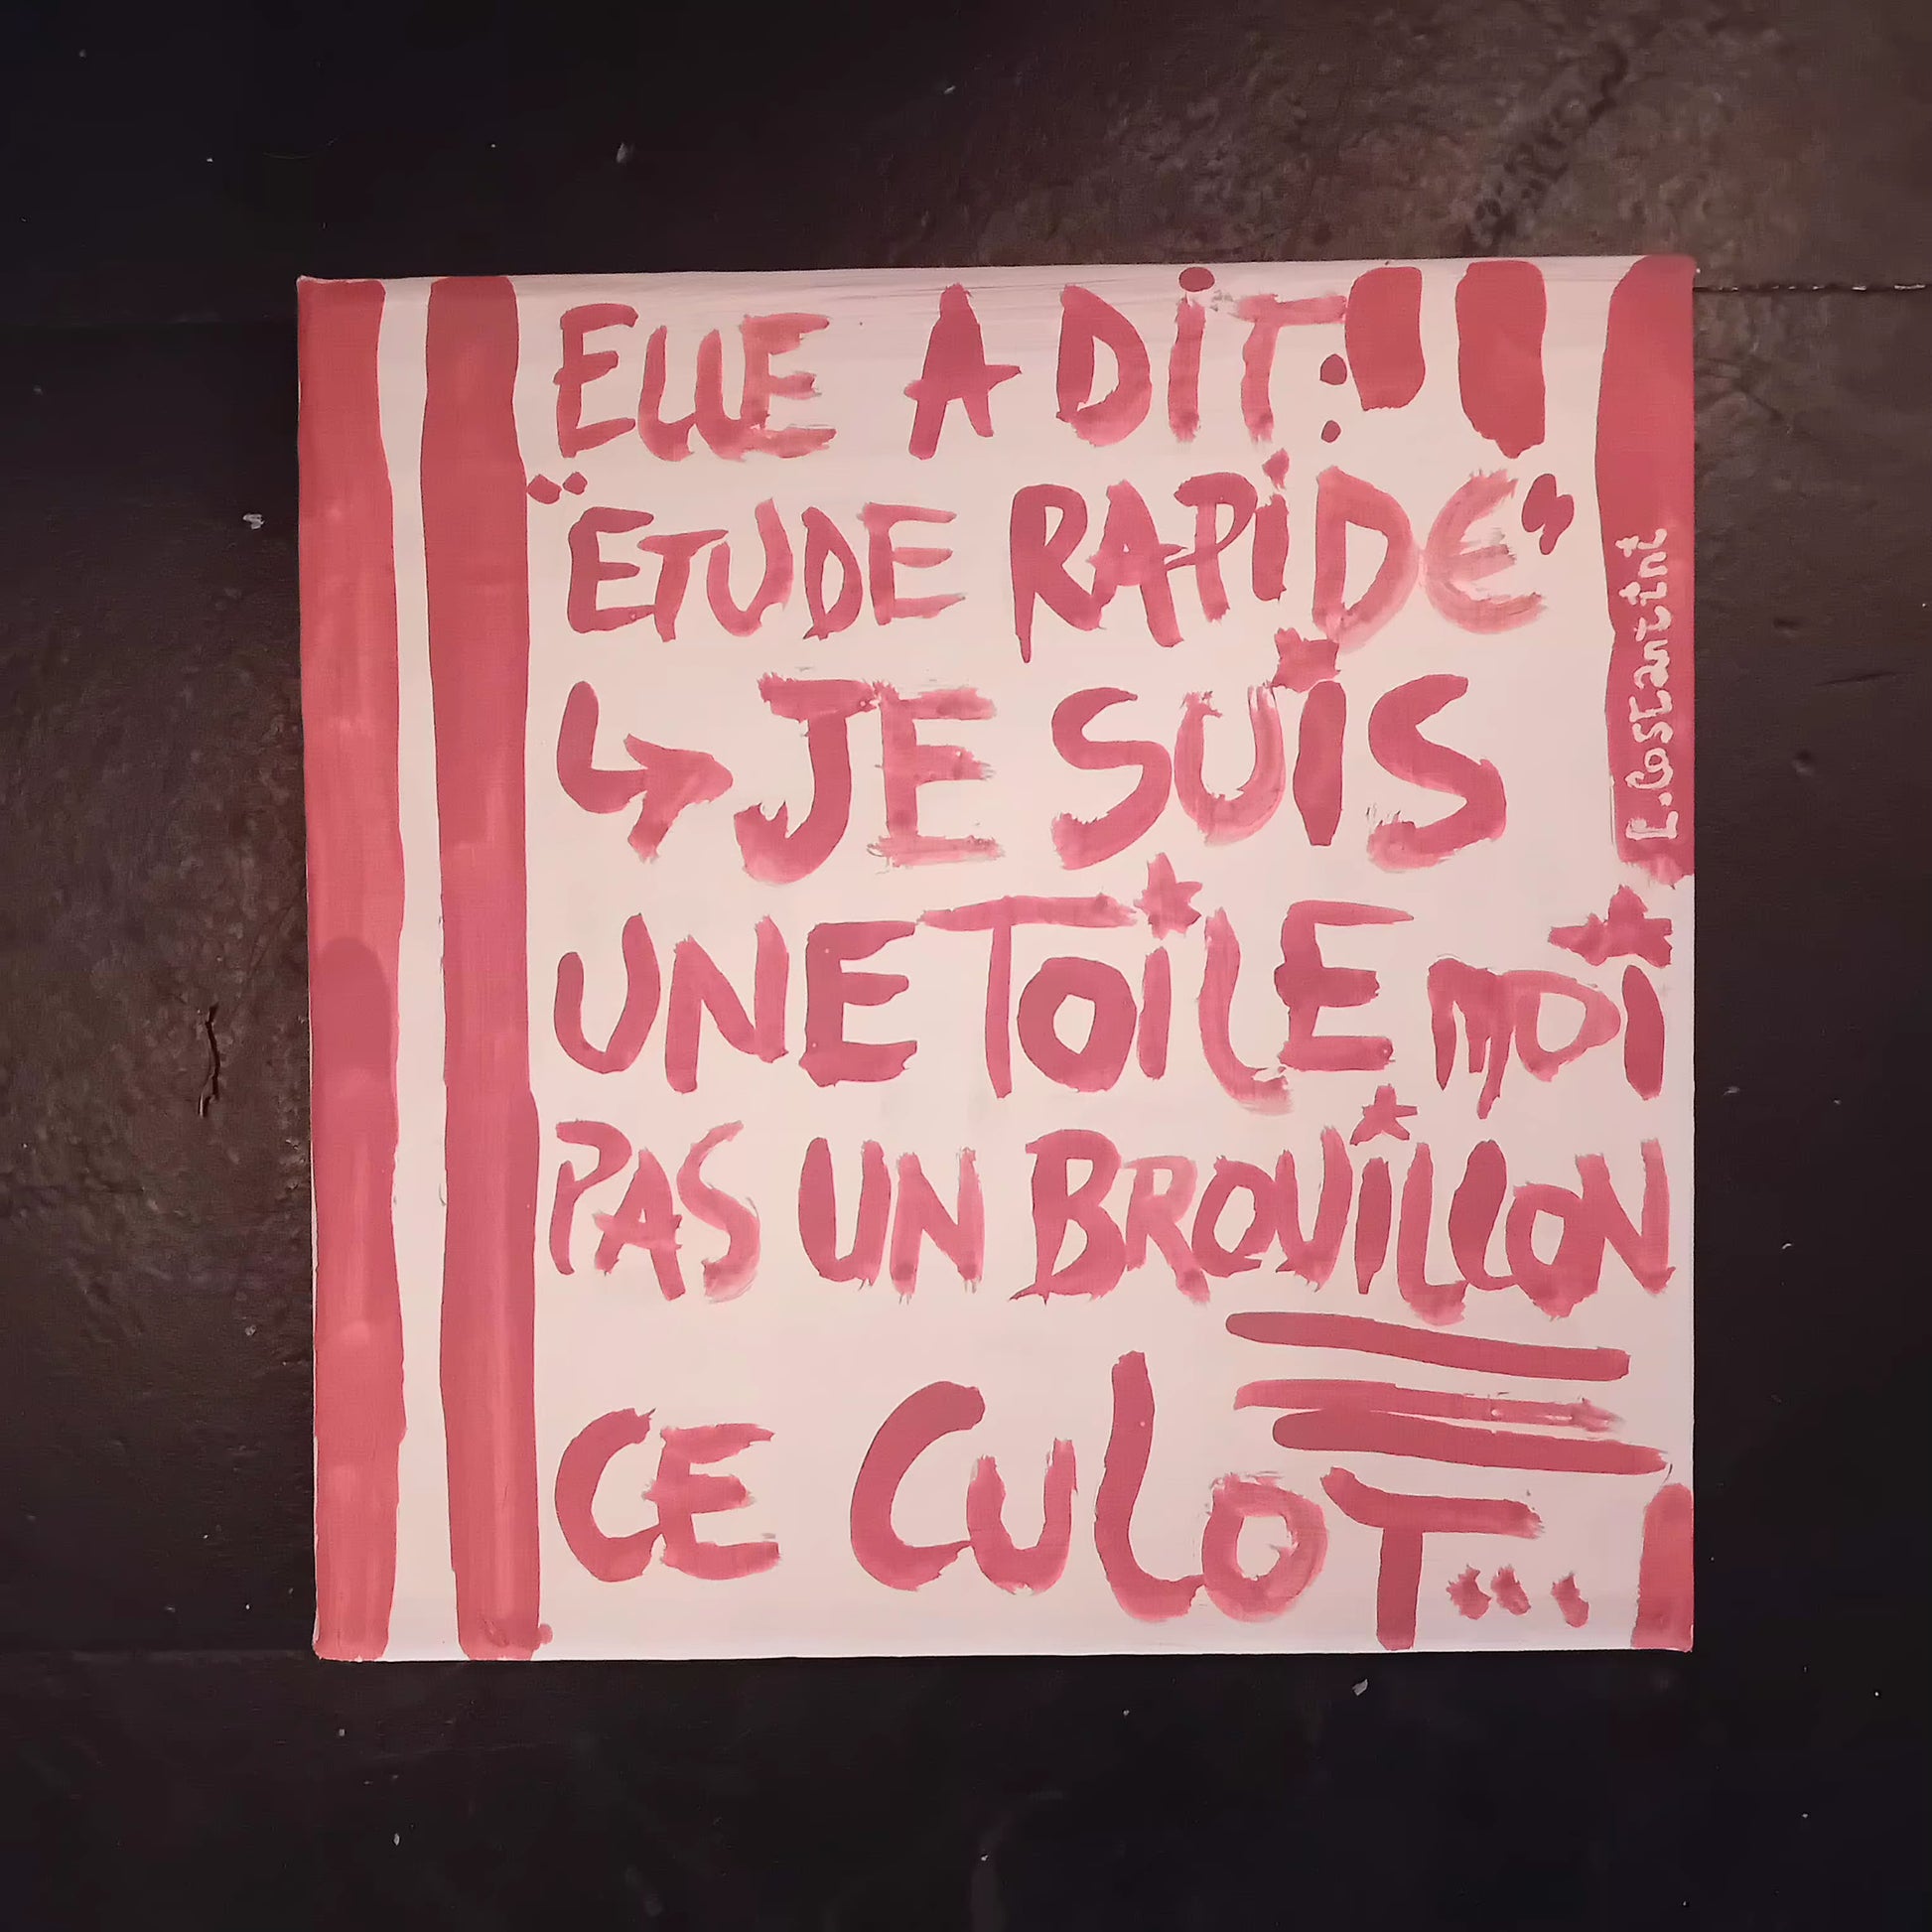 ELLE A DIT:
"ETUDE RAPIDE"
↳ JE SUIS
UNE TOILE MOI
PAS UN BROUILLON
CE CULOT...
L.Costantini